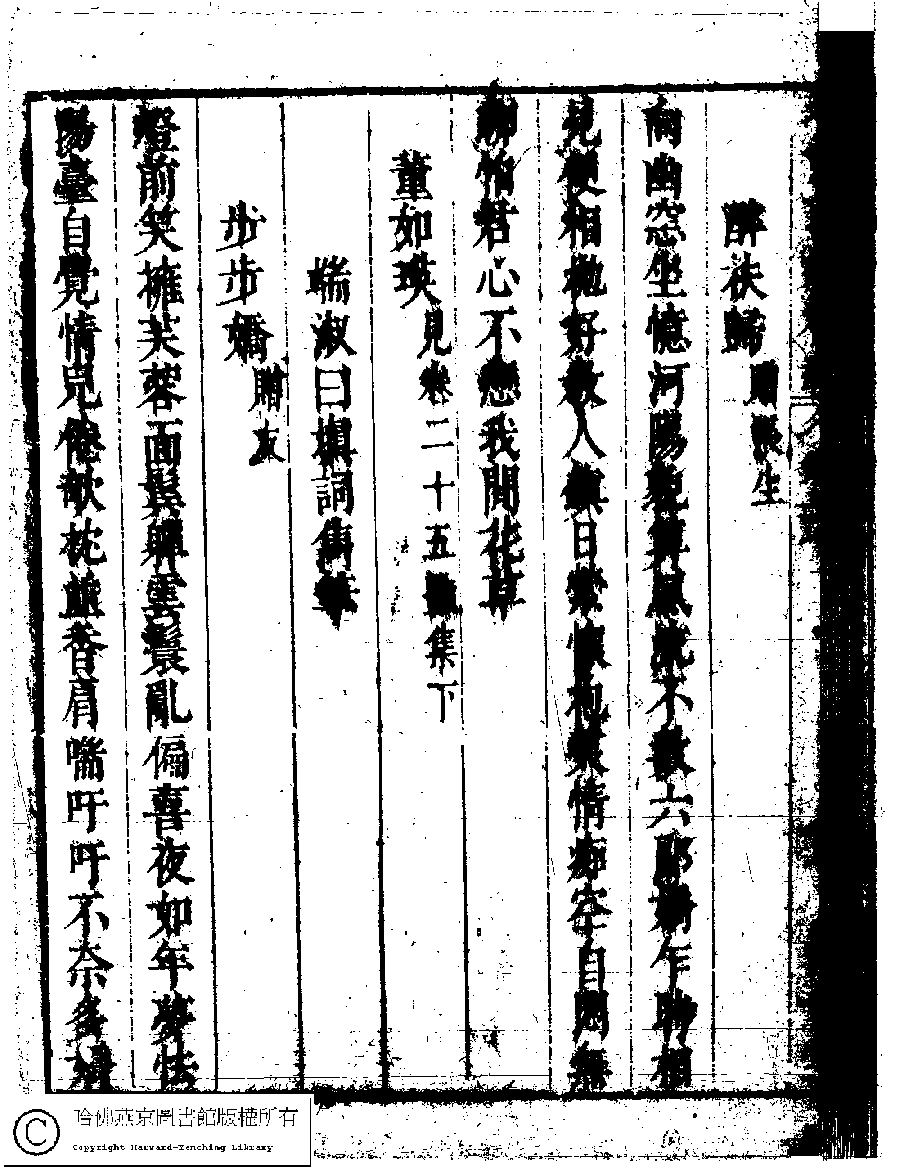 醉扶歸贈張生
向幽窓坐憶河陽貌算風流不數六郎嬌乍聯相
見便相拋好教人鎮日縈懷抱癡情痴空自悶無
聊怕君心不戀我閒花草
董如瑛見卷二十五雜集下
端淑曰瑱詞雋華
步步嬌贈友
燈前笑擁芙蓉面鬂嚲雲鬟亂偏喜夜如年夢怯
陽臺自覺情兒倦欹枕並香肩喘吁吁不奈多
哈佛燕京圖書館版權所有
Copyright Harvard-Yenching Library